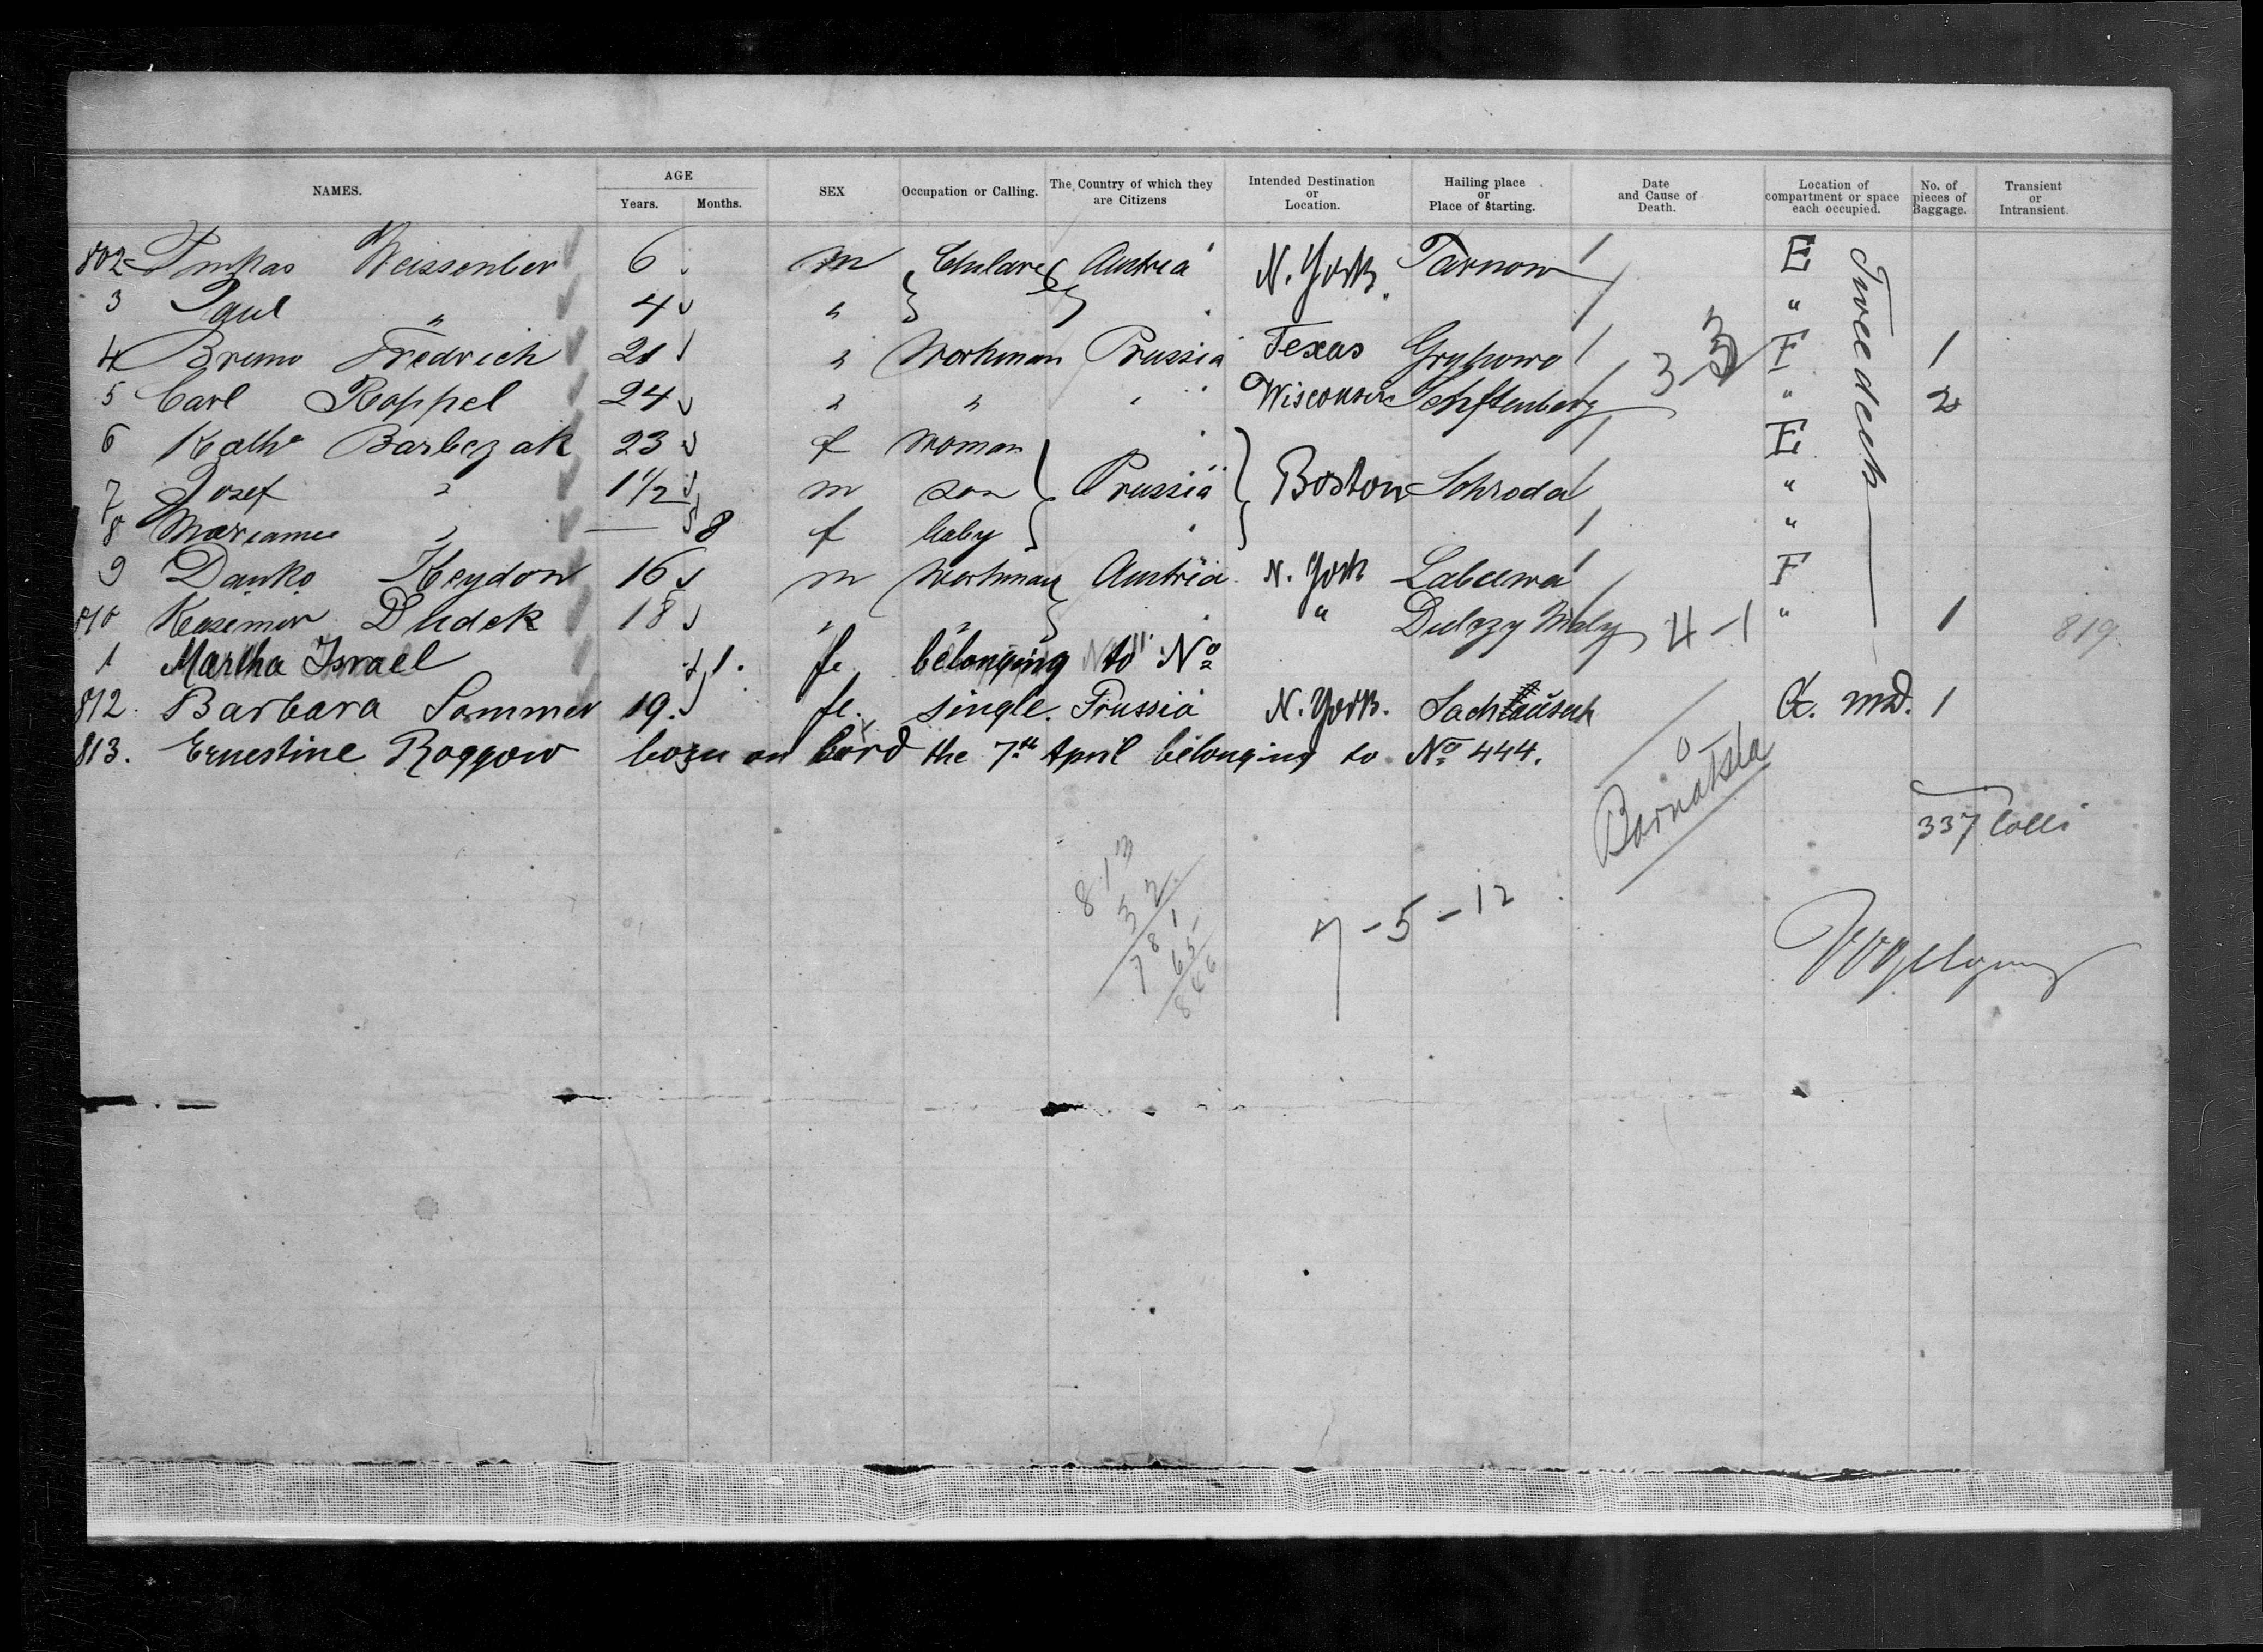 NAMES. AGE Years. Months. SEX Occupation or Calling. The Country of which they are Citizens Intended Destination or Location. Hailing place or Place of starting. Date and Cause of Death. Location of compartment or space each occupied. No. of pieces of Baggage. Transient or Intransient.
802 Weissenber 6 m Austria N. York Tarnow E
3 Paul " 4 " "
4 Bruno Fredrich 21 " Workman Prussia Texas Grybowo 3-3 F 1
5 Carl Roppel 24 " " " Wisconsin Senftenberg " 2
6 Kath Barbczak 23 f Woman E
7 Josef " 1 1/2 m son Prussia Boston Schroda "
8 Marianne " — 8 f baby "
9 Danko Heydon 16 m Workman Austria N. York F
810 Kasemir Dudek 18 " " " Dulczy Maly 4-1 " 1 819
1 Martha Israel 1. fe belonging to No
812. Barbara Sommer 19. fe. single. Prussia N. York. md. 1
813. Ernestine Roggow born on bord the 7th April belonging to No 444.
Tweedeck
337 Colli
813
32
781
65
846
7-5-12